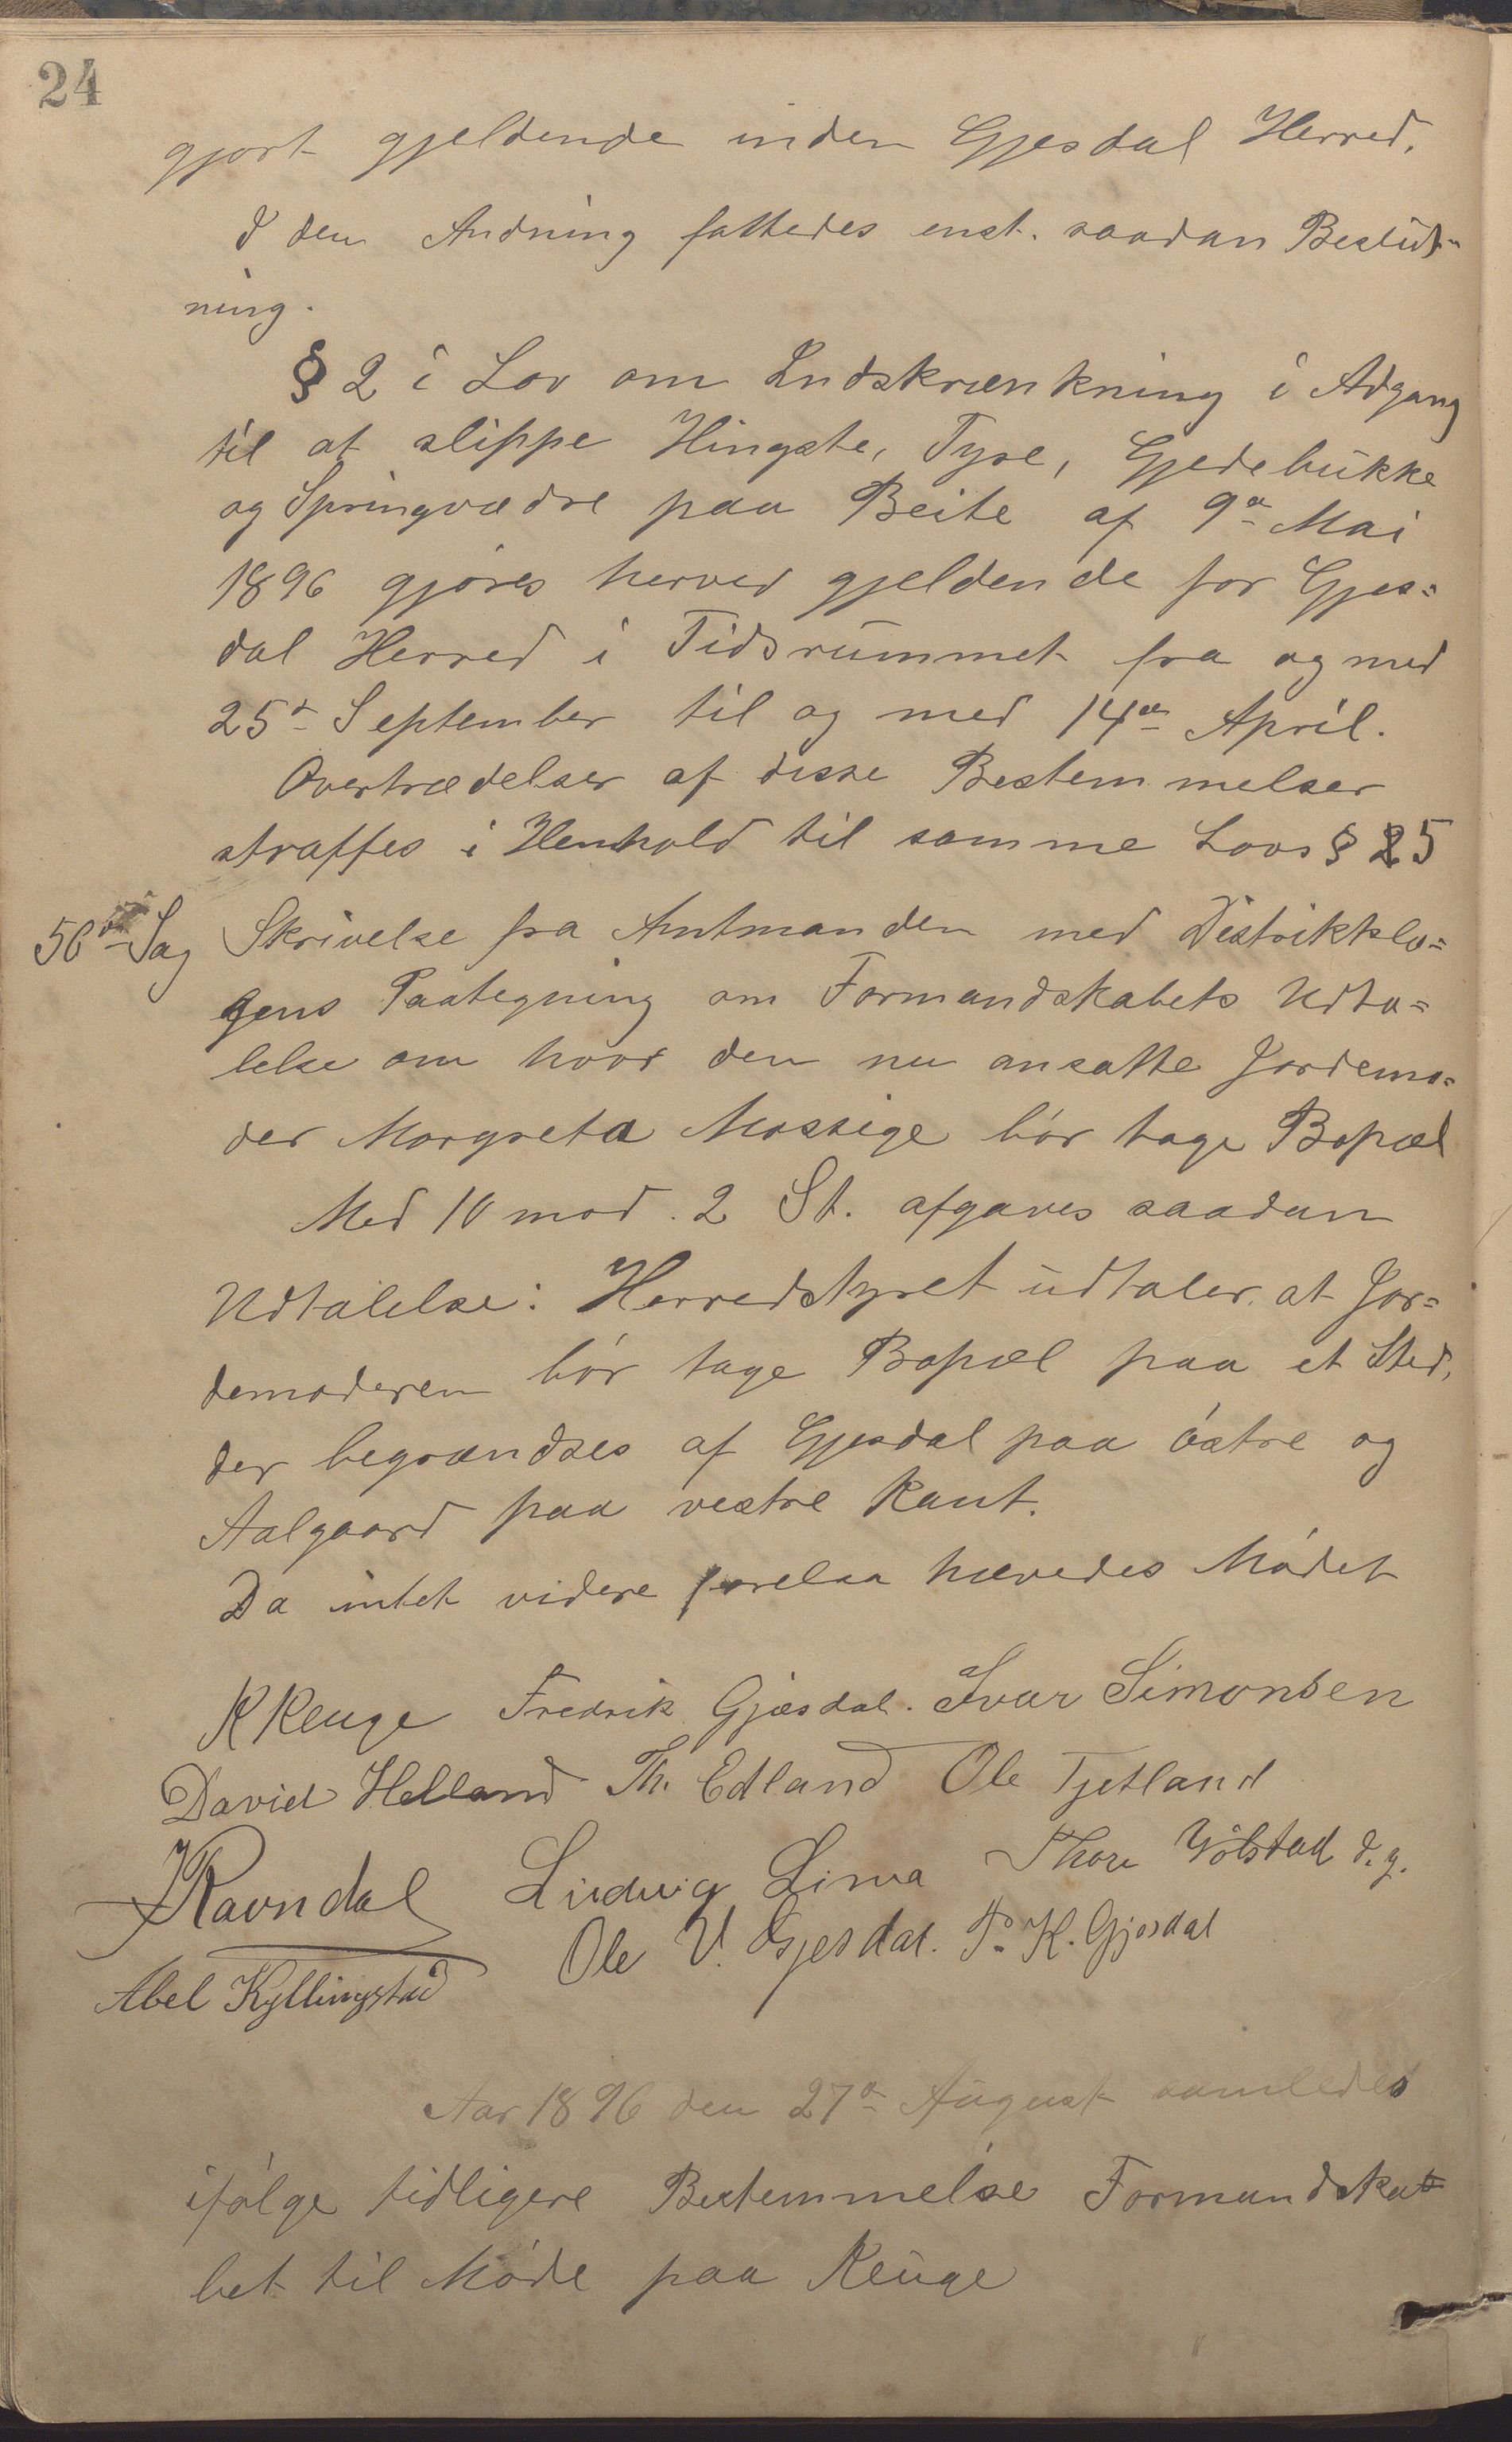 24
gjort gjeldende inden Gjesdal Herred.
I den Andning fattedes enst. saadan Beslut-
ning.
§ 2 i Lov om Indskrænkning i Adgang
til at slippe Hingste, Tyre, Gjedebukke
og Springvædre paa Beite af 9de Mai
1896 gjøres herved gjeldende for Gjes=
dal Herred i Tidsrummet fra og med
25de September til og med 14de April.
Overtrædelser af disse Bestemmelser
straffes i Henhold til samme Lovs § 5
56de Sag Skrivelse fra Amtmanden med Distriktslæ=
gens Paategning om Formandskabets Udta=
lelse om hvor den nu ansatte Jordemo=
der Margreta Mossige bør tage Bopæl
Med 10 mod 2 St. afgaves saadan
Udtalelse: Herredstyret udtaler, at Jor=
demoderen bør tage Bopæl paa et Sted,
der begrændses af Gjesdal paa østre og
Aalgaard paa vestre Kant.
Da intet videre forelaa hævedes Mødet
K Keuge Fredrik Gjæsdal. Ivar Simonsen
David Helland Th. Edland Ole Tjetland
Ravndal Ludvig Lima Thore Ølstad d.y.
Ole V. Gjesdal. P. K. Gjesdal
Abel Kyllingstad
Aar 1896 den 27de August samledes
ifølge tidligere Bestemmelse Formandska=
bet til Møde paa Keuge